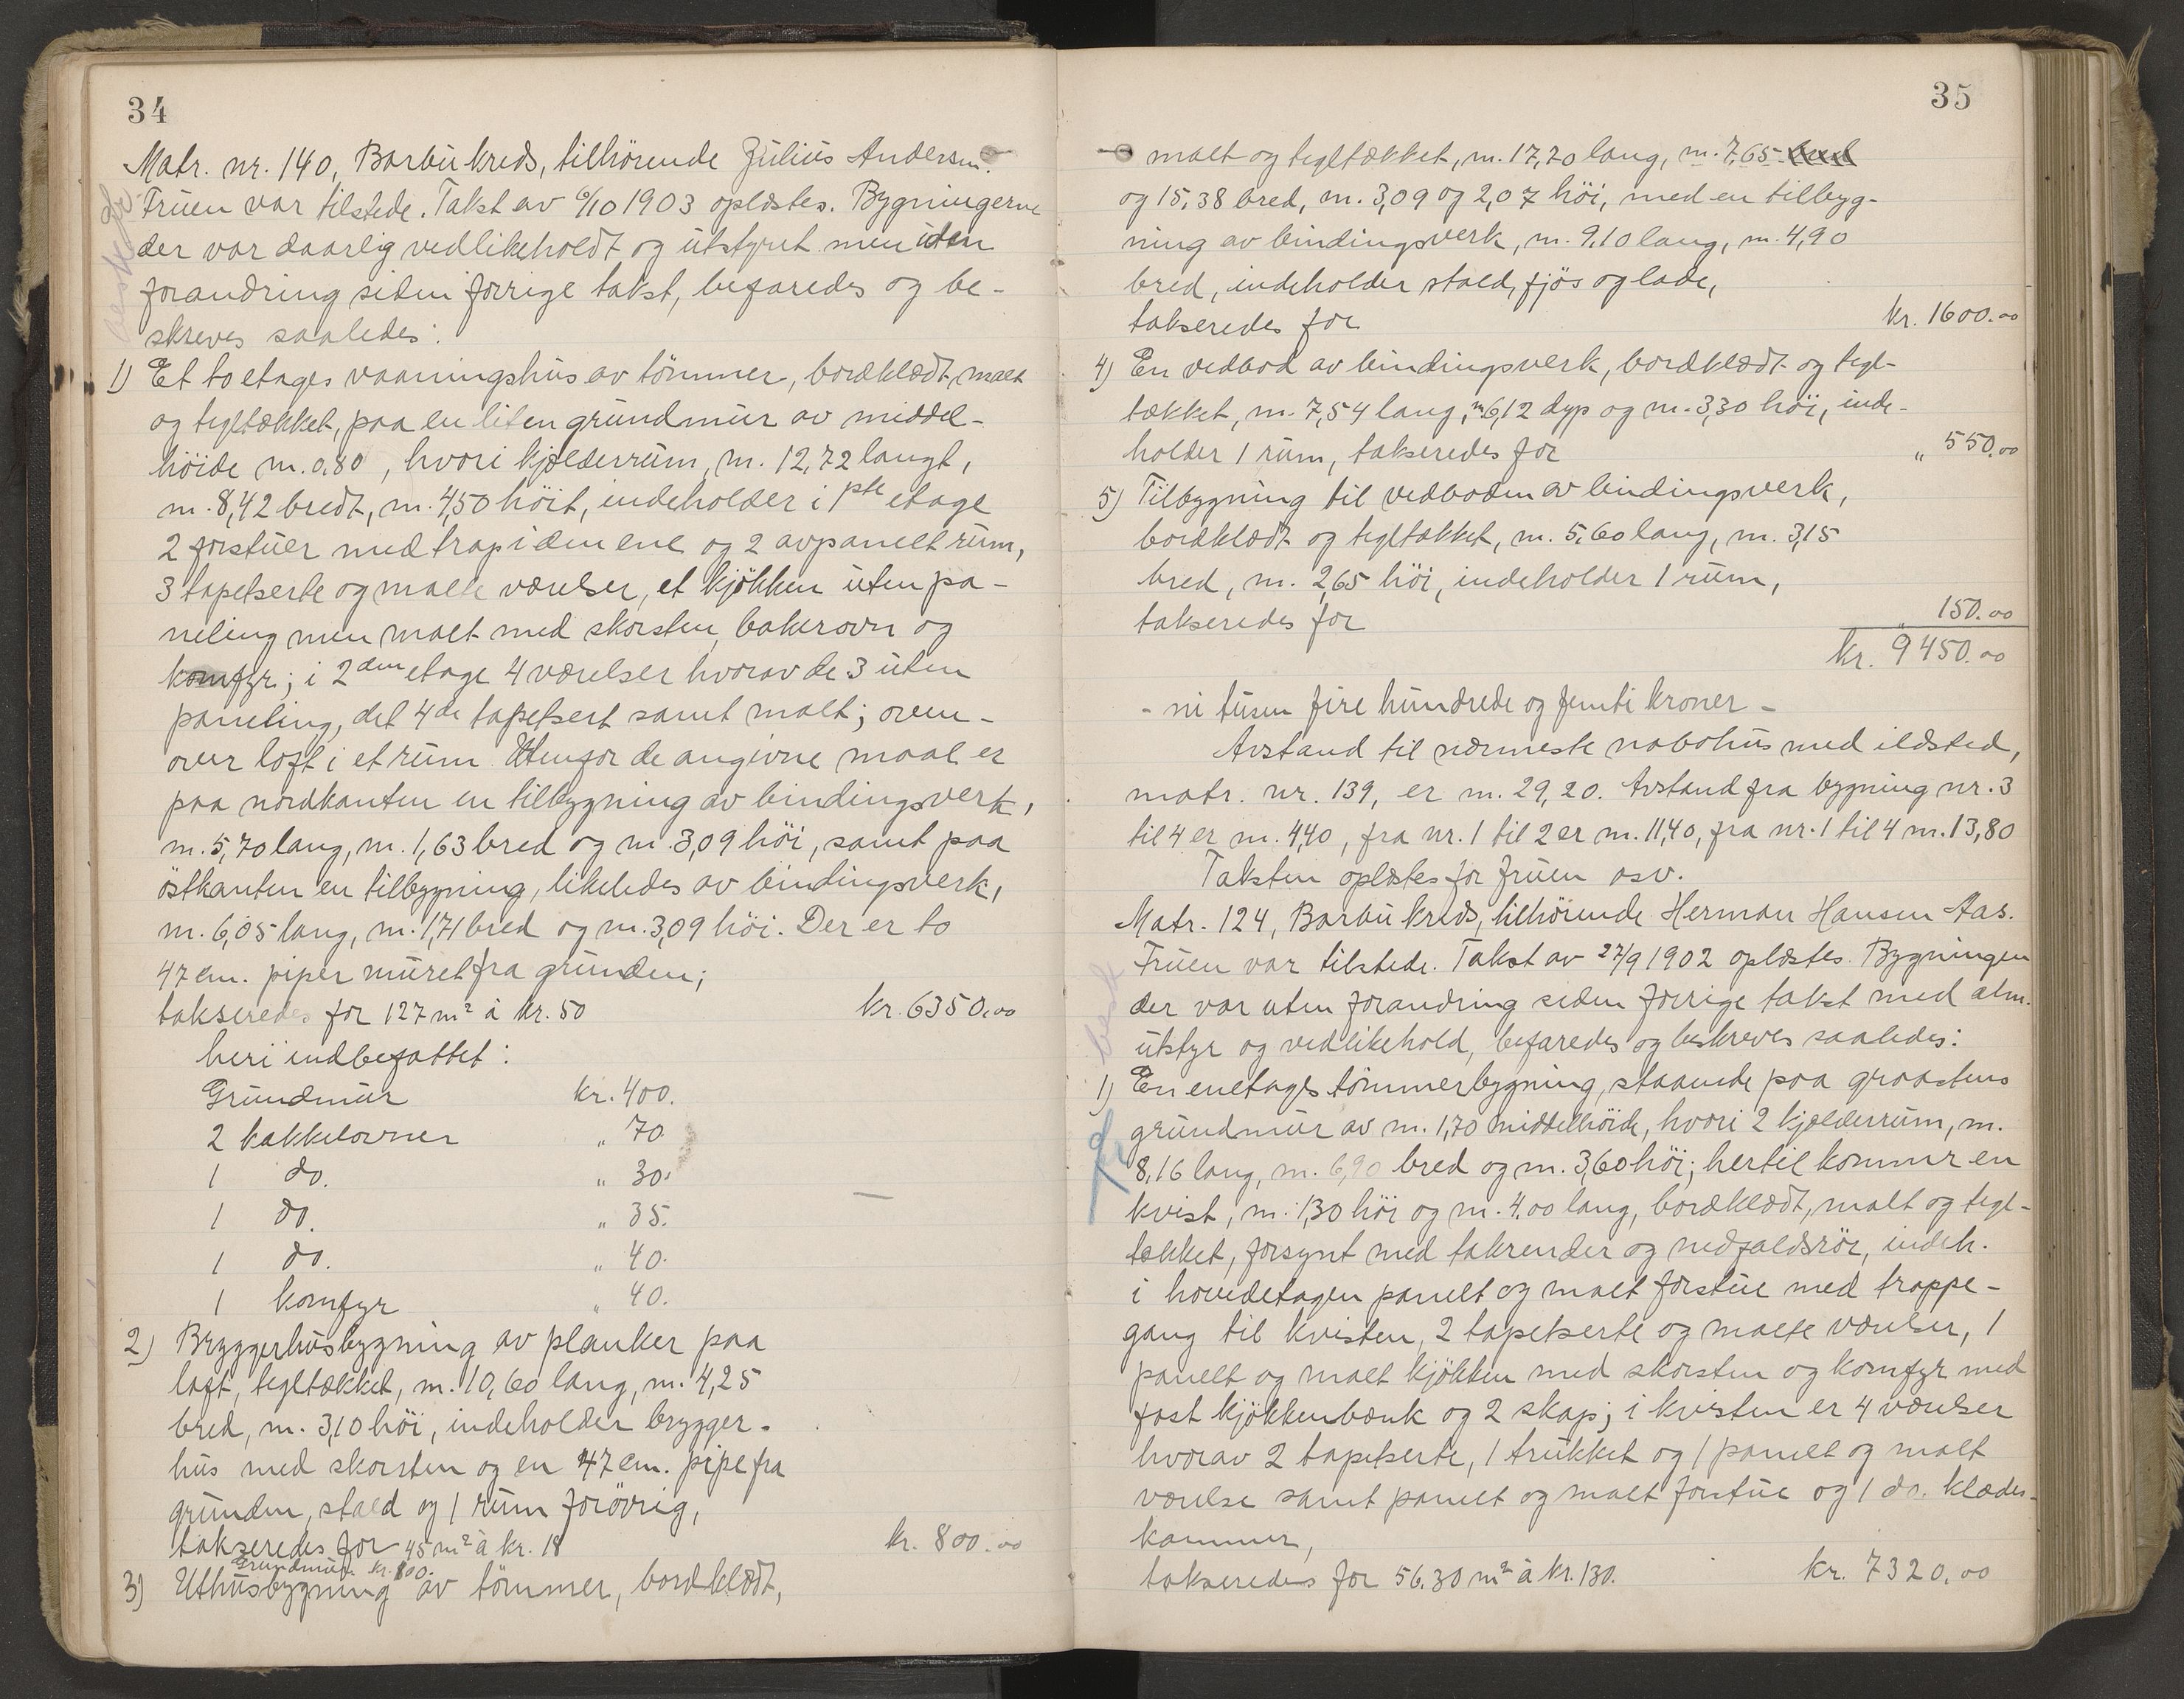 34
Matr. nr. 140, Barbu kreds, tilhörende Julius Andersen.
Fruen var tilstede. Takst av 6/10 1903 oplæstes. Bygningerne
der var daarlig vedlikeholdt og utstyret men uten
forandring siden forrige takst, befaredes og be-
skreves saaledes:
1) Et to etages vaaningshus av tömmer, bordklædt, malt
og tegltækket, paa en liten grundmur av middel-
höide m. 0,80, hvori kjelderrum, m. 12,72 langt,
m. 8,42 bredt, m. 4,50 höit, indeholder i 1ste etage
2 forstuer med trap i den ene og 2 avpanelt rum,
3 tapetserte og malte værelser, et kjökken uten pa-
neling men malt med skorsten, bakerovn og
komfyr; i 2den etage 4 værelser hvorav de 3 uten
paneling, det 4de tapetsert samt malt; oven-
over loft i et rum. Utenfor de angivne maal er
paa nordkanten en tilbygning av bindingsverk,
m. 5,70 lang, m. 1,63 bred og m. 3,09 höi, samt paa
östkanten en tilbygning, likeledes av bindingsverk,
m. 6,05 lang, m. 1,71 bred og m. 3,09 höi. Der er to
47 cm. piper muret fra grunden;
takseredes for 127 m² à kr. 50 kr. 6350.00
heri indbefattet:
Grundmur kr. 400.
2 kakkelovner " 70.
1 do. " 30.
1 do. " 35.
1 do. " 40.
1 komfyr " 40.
2) Bryggerhusbygning av planker paa
loft, tegltækket, m. 10,60 lang, m. 4,25
bred, m. 3,10 höi, indeholder brygger-
hus med skorsten og en 47 cm. pipe fra
grunden, stald og 1 rum forövrig,
takseredes for 45 m² à kr. 18 kr. 800.00
Grundmur kr. 100.
3) Uthusbygning av tömmer, bordklædt,
35
malt og tegltækket, m. 17,70 lang, m. 7,65
og 15,38 bred, m. 3,09 og 2,07 höi, med en tilbyg-
ning av bindingsverk, m. 9,10 lang, m. 4,90
bred, indeholder stald, fjös og lade,
takseredes for kr. 1600.00
4) En vedbod av bindingsverk, bordklædt og tegl-
tækket, m. 7,54 lang, m. 6,12 dyp og m. 3,30 höi, inde-
holder 1 rum, takseredes for " 550.00
5) Tilbygning til vedboden av bindingsverk,
bordklædt og tegltækket, m. 5,60 lang, m. 3,15
bred, m. 2,65 höi, indeholder 1 rum,
takseredes for 150.00
kr. 9450.00
- ni tusen fire hundrede og femti kroner -
Avstand til nærmeste nabohus med ildsted,
matr. nr. 139, er m. 29,20. Avstand fra bygning nr. 3
til 4 er m. 4,40, fra nr. 1 til 2 er m. 11,40, fra nr. 1 til 4 m. 13,80
Taksten oplæstes for fruen osv.
Matr. 124, Barbu kreds, tilhörende Herman Hansen Aas.
Fruen var tilstede. Takst av 27/9 1902 oplæstes. Bygningen
der var uten forandring siden forrige takst med alm.
utstyr og vedlikehold, befaredes og beskreves saaledes:
1) En enetages tömmerbygning, staaende paa graastens
grundmur av m. 1,70 middelhöide, hvori 2 kjelderrum, m.
8,16 lang, m. 6,90 bred og m. 3,60 höi; hertil kommer en
kvist, m. 1,30 höi og m. 4,00 lang, bordklædt, malt og tegl-
tækket, forsynt med takrender og nedfaldsrör, indeh.
i hovedetagen panelt og malt forstue med trappe-
gang til kvisten, 2 tapetserte og malte værelser, 1
panelt og malt kjökken med skorsten og komfyr med
fast kjökkenbænk og 2 skap; i kvisten er 4 værelser
hvorav 2 tapetserte, 1 trukket og 1 panelt og malt
værelse samt panelt og malt forstue og 1 do. klædes-
kammer,
takseredes for 56,30 m² à kr. 130. kr. 7320.00